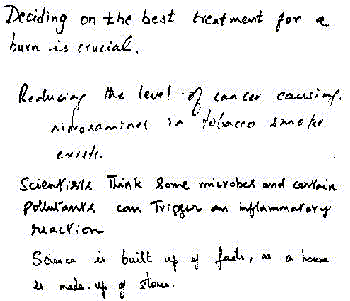 Deciding on the best treatment for a
burn is crucial.
Reducing the level of cancer causing
nitrosamines in tobacco smoke
exists.
Scientists Think Some microbes and certain
pollutants can Trigger an inflammatory
reaction
Science is built up of facts, as a house
is made up of stones.